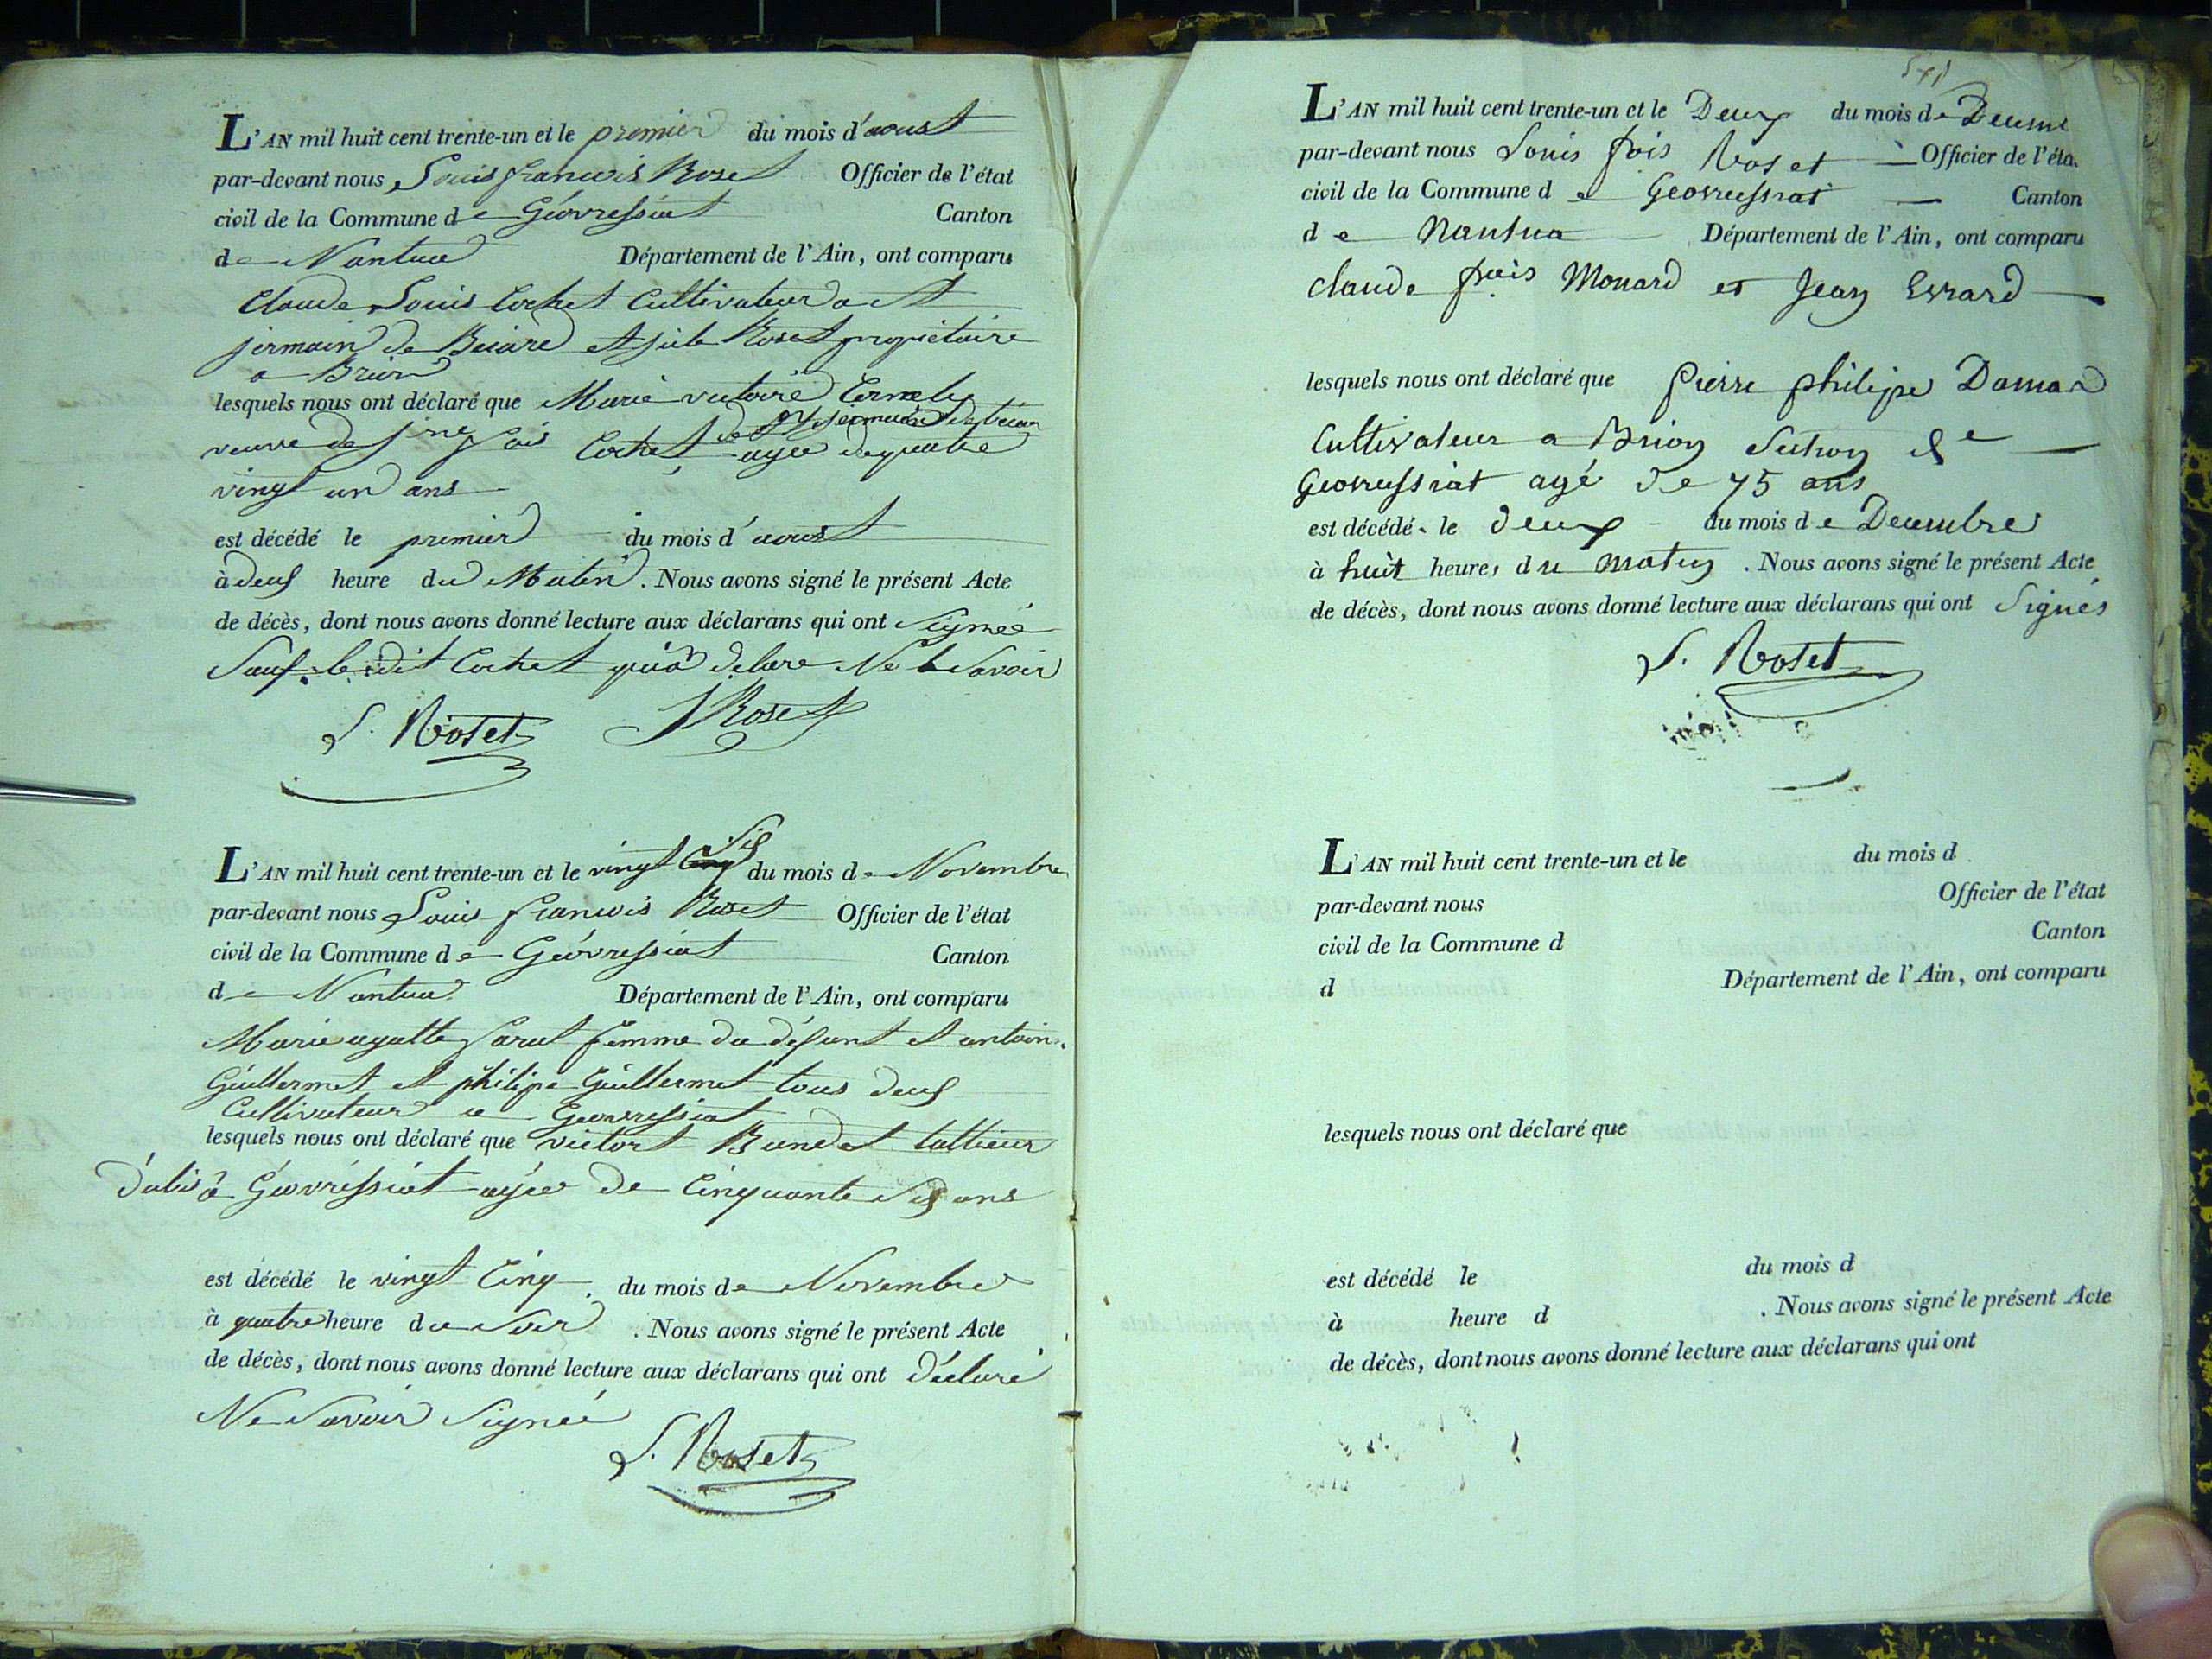 L'AN mil huit cent trente-un et le premier du mois d'aoust
par-devant nous Louis francois Roset Officier de l'état
civil de la Commune de Géovressiat Canton
de Nantua Département de l'Ain, ont comparu
Claude Louis Cochet Cultivateur a st
jermain de Beiare et jule Roset propriétaire
a Brion
lesquels nous ont déclaré que Marie victoire
de st jermain de
veuve de fois Cochet agée de quatre
vingt un ans
est décédé le premier du mois d'aoust
à deux heure du Matin. Nous avons signé le présent Acte
de décès, dont nous avons donné lecture aux déclarans qui ont Signée
Sauf le dit Cochet qui a delare Ne Savoir
L. Roset J Roset
L'AN mil huit cent trente-un et le vingt Six du mois de Novembre
par-devant nous Louis francois Roset Officier de l'état
civil de la Commune de Géovressiat Canton
de Nantua Département de l'Ain, ont comparu
Marie agatte femme du défunt et antoine
Guillermet et philipe Guillermet tous deux
Cultivateur a Geovressiat
lesquels nous ont déclaré que victort Bandet tallieur
d'abis a Géovréssiat agée de Cinquante Six ans
est décédé le vingt Cinq du mois de Novembre
à quatre heure du Soir. Nous avons signé le présent Acte
de décès, dont nous avons donné lecture aux déclarans qui ont déclaré
Ne Savoir Signée
L. Roset
L'AN mil huit cent trente-un et le Deux du mois de
par-devant nous Louis fois Roset Officier de l'éta
civil de la Commune de Geovressiat Canton
de Nantua Département de l'Ain, ont comparu
claude frois Monard et Jean Evrard
lesquels nous ont déclaré que pierre philipe Damas
Cultivateur a Brion Section de
Geovressiat agé de 75 ans
est décédé le deux du mois de Decembre
à huit heures du matin. Nous avons signé le présent Acte
de décès, dont nous avons donné lecture aux déclarans qui ont Signés
L. Roset
L'AN mil huit cent trente-un et le du mois d
par-devant nous Officier de l'état
civil de la Commune d Canton
d Département de l'Ain, ont comparu
lesquels nous ont déclaré que
est décédé le du mois d
à heure d . Nous avons signé le présent Acte
de décès, dont nous avons donné lecture aux déclarans qui ont